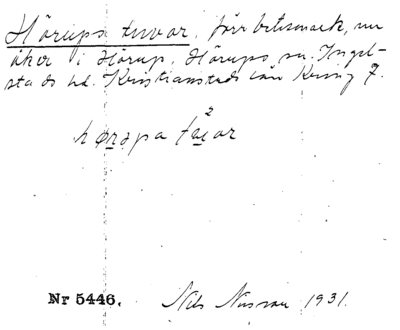 Hörups tuvor, förr betesmark, nu
åker i Hörup, Hörups sn. Ingel-
stads hd. Kristianstads län Kring 7.
hörəpa tuar
2
Nr 5446. Nils Nilsson 1931.